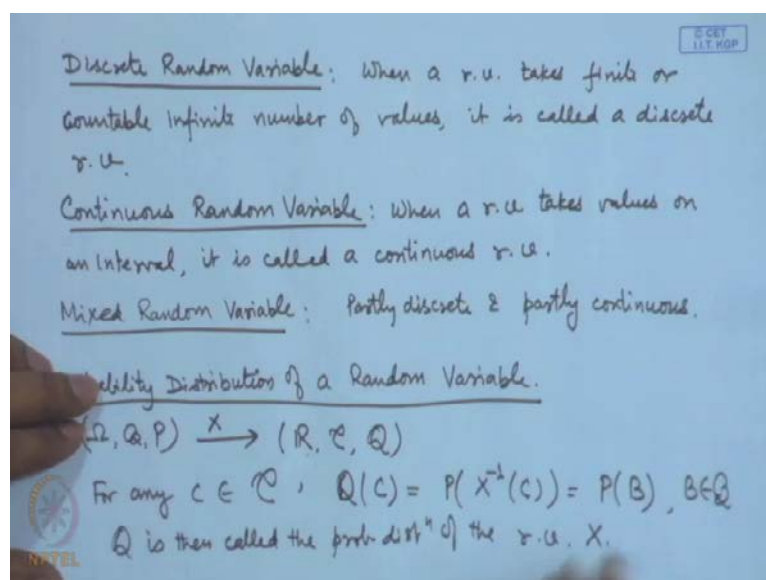 © CET
I.I.T. KGP
Discrete Random Variable: When a r.v. takes finite or
countable infinite number of values, it is called a discrete
r.v.
Continuous Random Variable: When a r.v. takes values on
an interval, it is called a continuous r.v.
Mixed Random Variable: Partly discrete & partly continuous.
bability Distribution of a Random Variable.
(Ω, B, P) X → (R, C, Q)
For any C ∈ C, Q(C) = P(X⁻¹(C)) = P(B), B∈B
Q is then called the prob. distⁿ of the r.v. X.
NPTEL